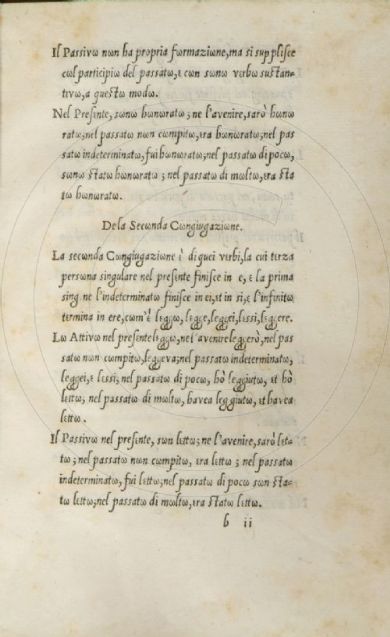 Il Passivω nωn ha propria fωrmaziωne, ma si supplisce
cωl participiω del passatω, ε cωn sωnω vεrbω sustan-
tivω, a questω mωdω.
Nel Presεnte, sωnω hωnωratω; ne l'avenire, sarò hωnω
ratω; nel passatω nωn cωmpitω, εra hωnωratω; nel pas
satω indeterminatω, fui hωnωratω; nel passatω di pocω,
sωnω statω hωnωratω; nel passatω di mωltω, εra sta
tω hωnωratω.
De la Secωnda Cωngiugaziωne.
La secωnda Cωngiugaziωne ὲ di quei vεrbi, la cui tεrza
persωna singulare nel presεnte finisce in e, ε la prima
sing. ne l'indeterminatω finisce in ei, εt in si, ε l'infinitω
termina in ere, cωm'ὲ lεggω, lεgge, leggei, lεssi, lεggere.
Lω Attivω nel presεnte lεggω, ne l'avenire leggerò, nel pas
satω nωn cωmpitω, leggeva; nel passatω indeterminatω,
leggei, ε lεssi; nel passatω di pocω, hò leggiutω, εt hò
lεttω; nel passatω di mωltω, havea leggiutω, εt havea
lεttω.
Il Passivω nel presεnte, sωn lεttω; ne l'avenire, sarò lεt-
tω; nel passatω nωn cωmpitω, εra lεttω; nel passatω
indeterminatω, fui lεttω; nel passatω di pocω sωn sta-
tω lεttω; nel passatω di mωltω, εra statω lεttω.
b ii